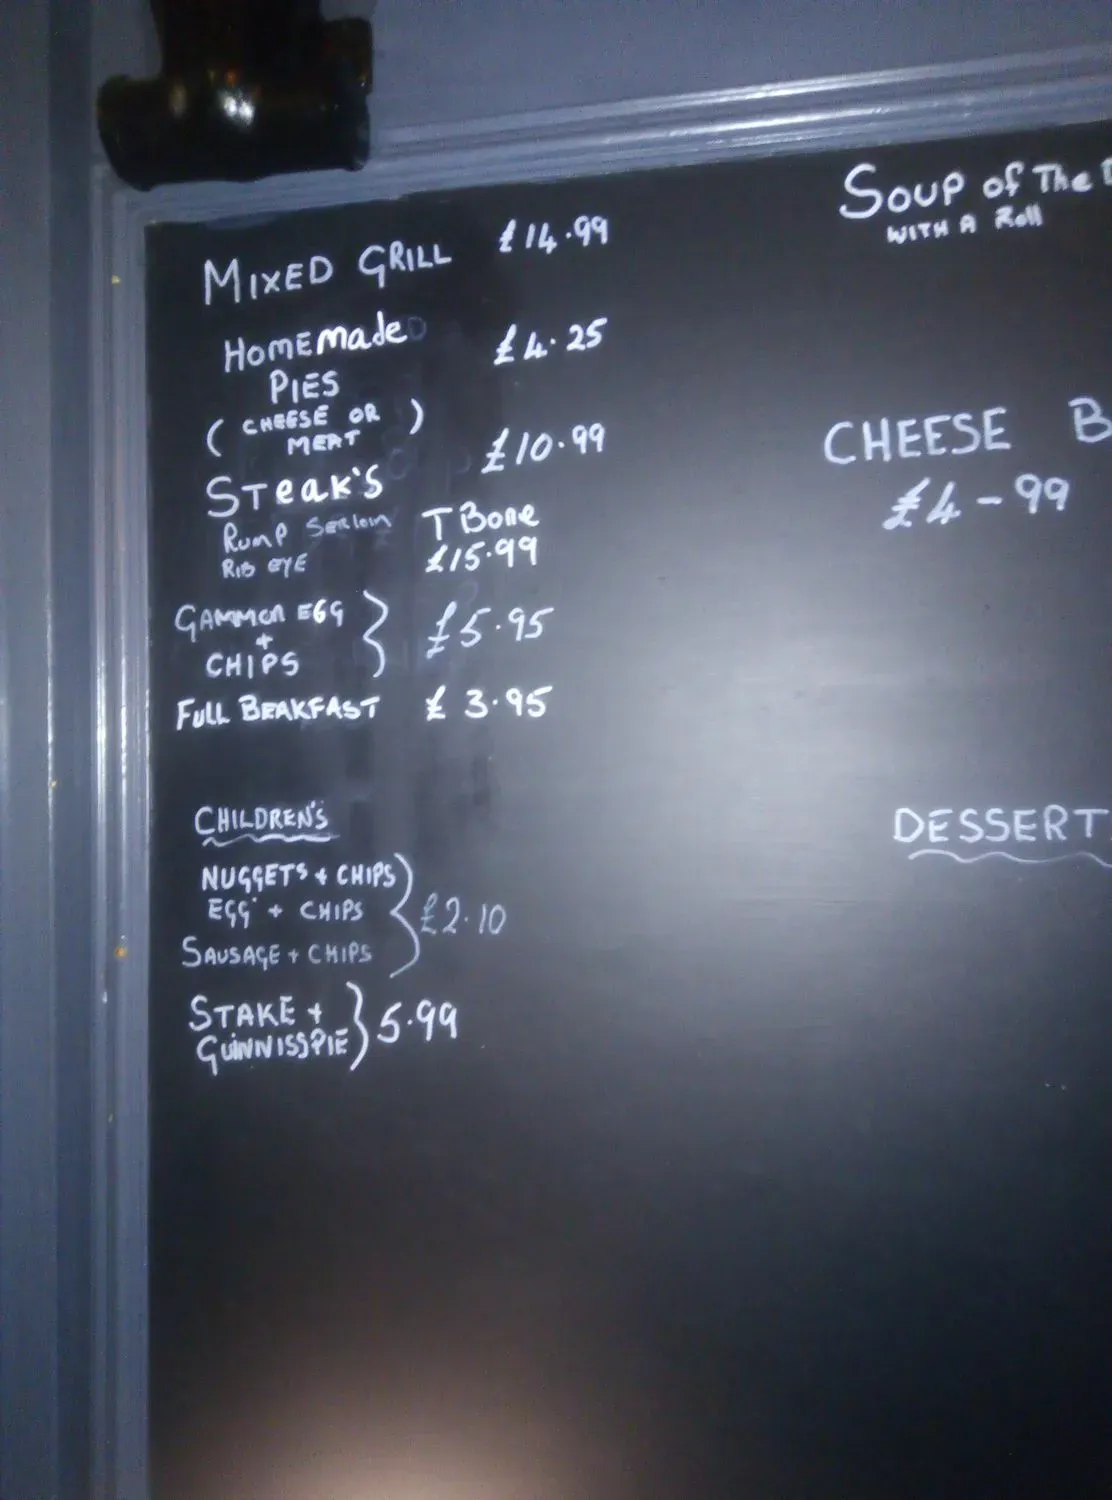 MIXED GRILL £14.99
HOMEMade £4.25
PIES
( CHEESE OR )
MEAT
STeaK'S £10.99
RUMP SERLOIN T Bone
RIB EYE £15.99
GAMMON EGG
+
CHIPS £5.95
FULL BEAKFAST £3.95
CHILDREN'S
NUGGETS + CHIPS
EGG + CHIPS £2.10
SAUSAGE + CHIPS
STAKE +
GUINNISSPIE 5.99
SOUP OF THE
WITH A Roll
CHEESE B
£4-99
DESSERT